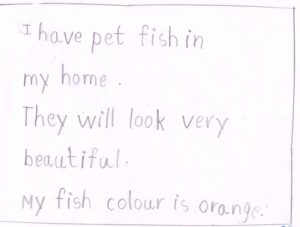 I have pet fish in
my home.
They will look very
beautiful.
My fish colour is orange.